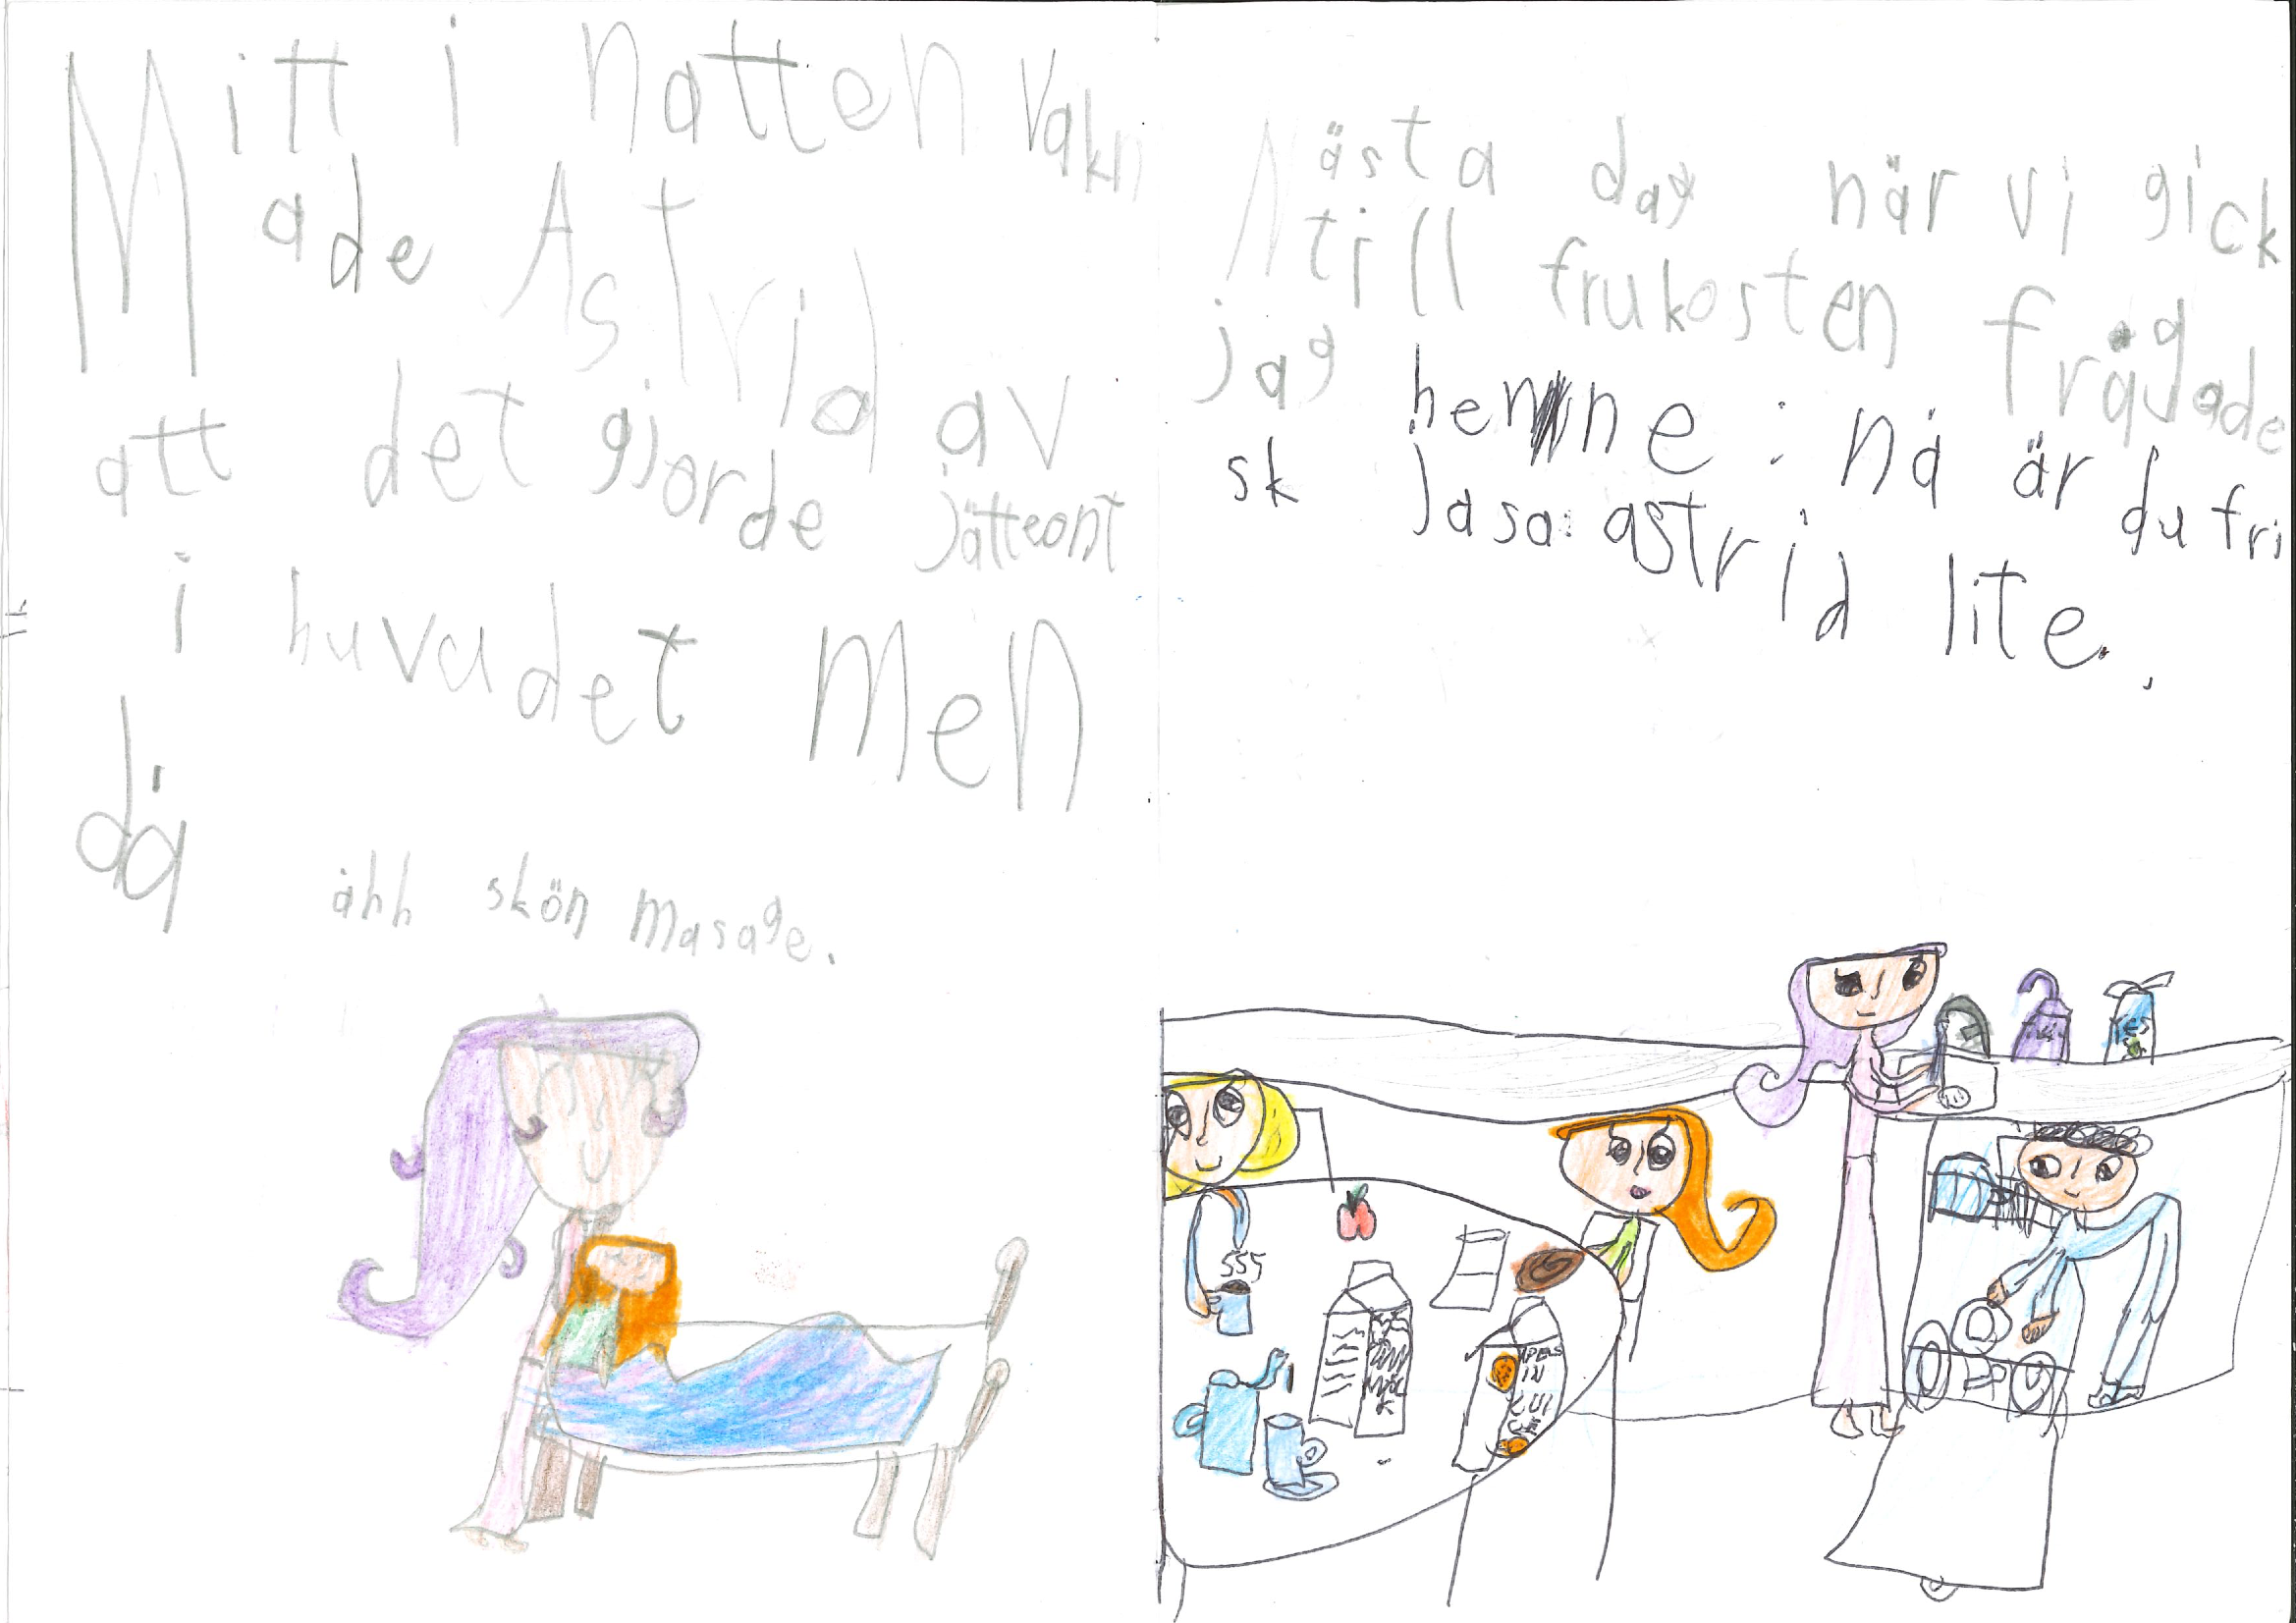 Mitt i natten vakn
ade Astrid av
att det gjorde jätteont
i huvudet men
då
åhh skön masage.
Nästa dag när vi gick
till frukosten frågade
jag henne: nå är du fri
sk jasa: astrid lite.
SSS
MJÖL
K
YES
APELS
IN
JUI
CE